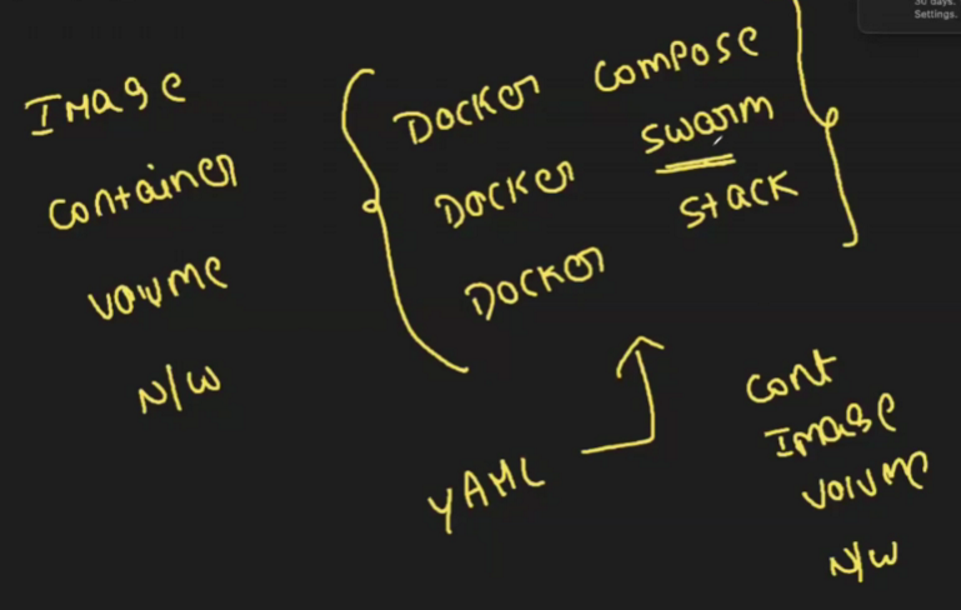 30 days.
Settings.
Image
Container
Volume
N/W
Docker Compose
Docker Swarm
Docker Stack
YAML
Cont
Image
Volume
N/W